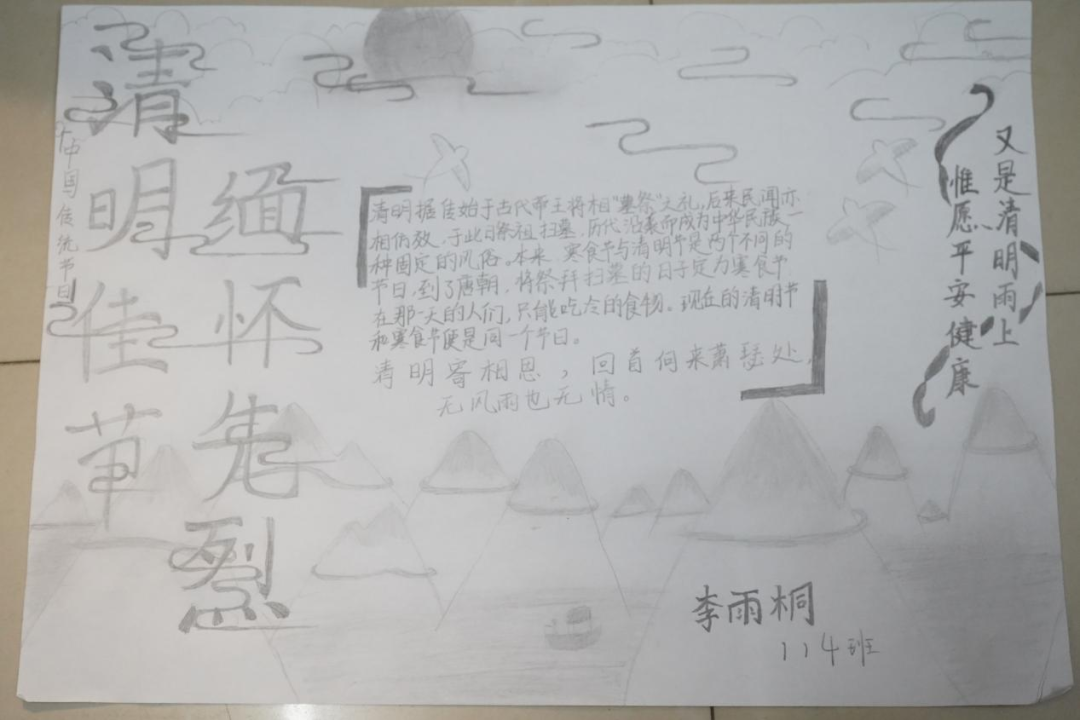 清明佳节
缅怀先烈
中国传统节日
清明据传始于古代帝王将相“墓祭”之礼,后来民间亦
相仿效,于此日祭祖扫墓,历代沿袭而成为中华民族一
种固定的风俗。本来,寒食节与清明节是两个不同的
节日,到了唐朝,将祭拜扫墓的日子定为寒食节
在那一天的人们,只能吃冷的食物。现在的清明节
和寒食节便是同一个节日。
清明寄相思,回首向来萧瑟处,
无风雨也无情。
又是清明雨上
惟愿平安健康
李雨桐
114班